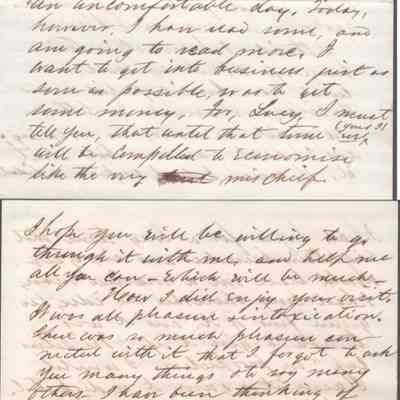 an uncomfortable day. Today,
however, I have read some, and
am going to read more. I
want to get into business just as
soon as possible, so as to get
some money. For, Lucy, I must
tell you, that until that time
will be compelled to Economise
like the very mischief.
I hope you will be willing to go
through it with me, and help me
all you can – which will be much –
How I did enjoy your visit.
It was all pleasure & intoxication.
There was so much pleasure con
nected with it that I forgot to ask
you many things & to say many
others. I have been thinking of